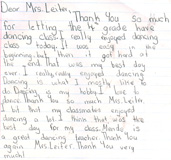 Dear Mrs. Leiter,
Thank You so much
for letting the 4th grade have
dancing class. I really enjoyed dancing
class today. It was easy in the
beginning but then it got hard at
the end. That was my best day
ever. I really, really enjoyed dancing.
Dancing is what I really like to
do. Daying is my hobby. I love to
dance. Thank You so much Mrs. Leiter.
I bet that my classmates enjoyed
dancing a lot. I think that was the
best day for my class. Mando is
a great dancing teacher. Thank You
again Mrs. Leiter. Thank You very
much!